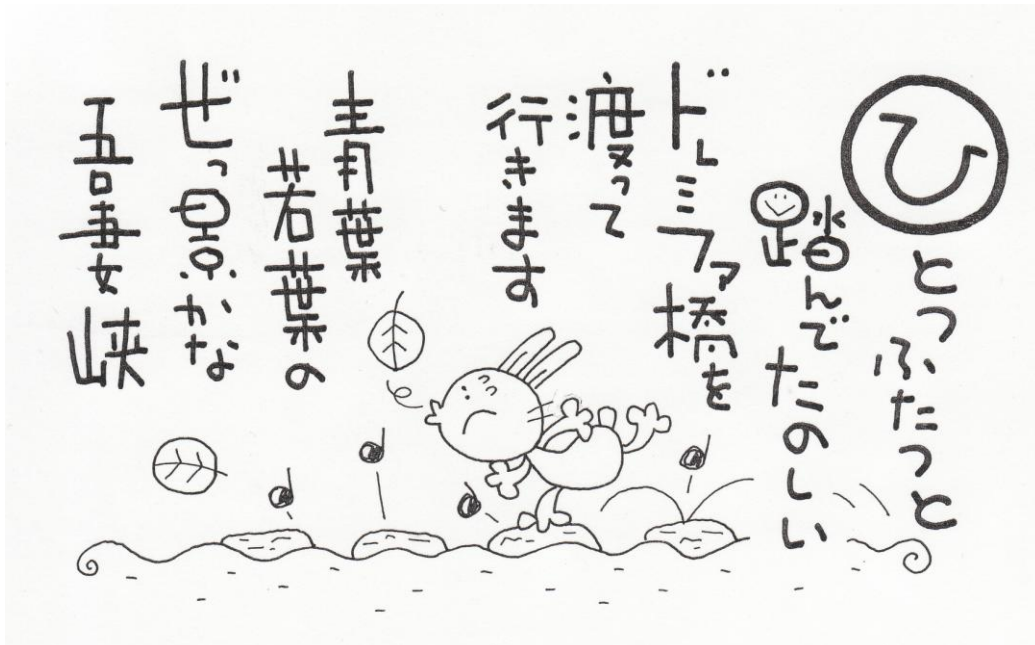 ひとつふたつと
踏んでたのしい
ドレミファ橋を
渡って
行きます
青葉
若葉の
ぜっ景かな
吾妻峡